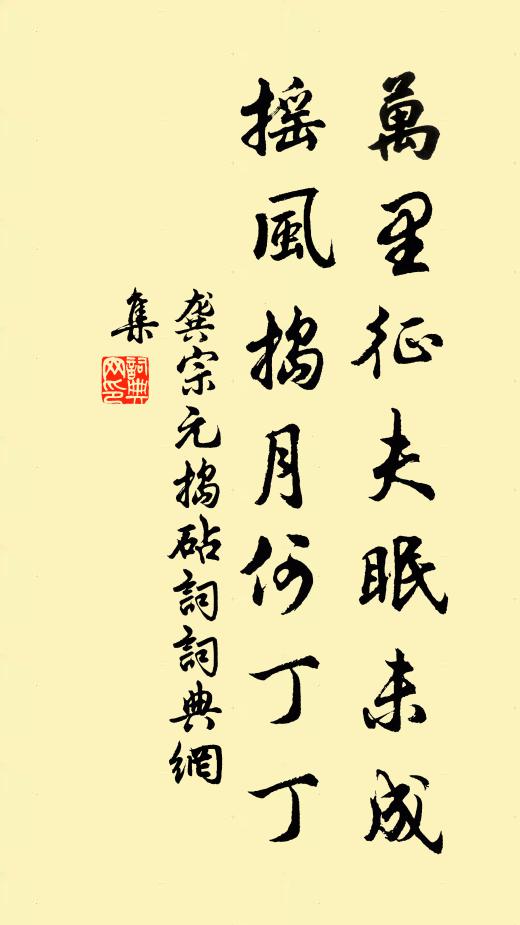 萬里征夫眠未成
搖風搗月何丁丁
龔宗元搗砧詞詞典網
集
詞典
网印